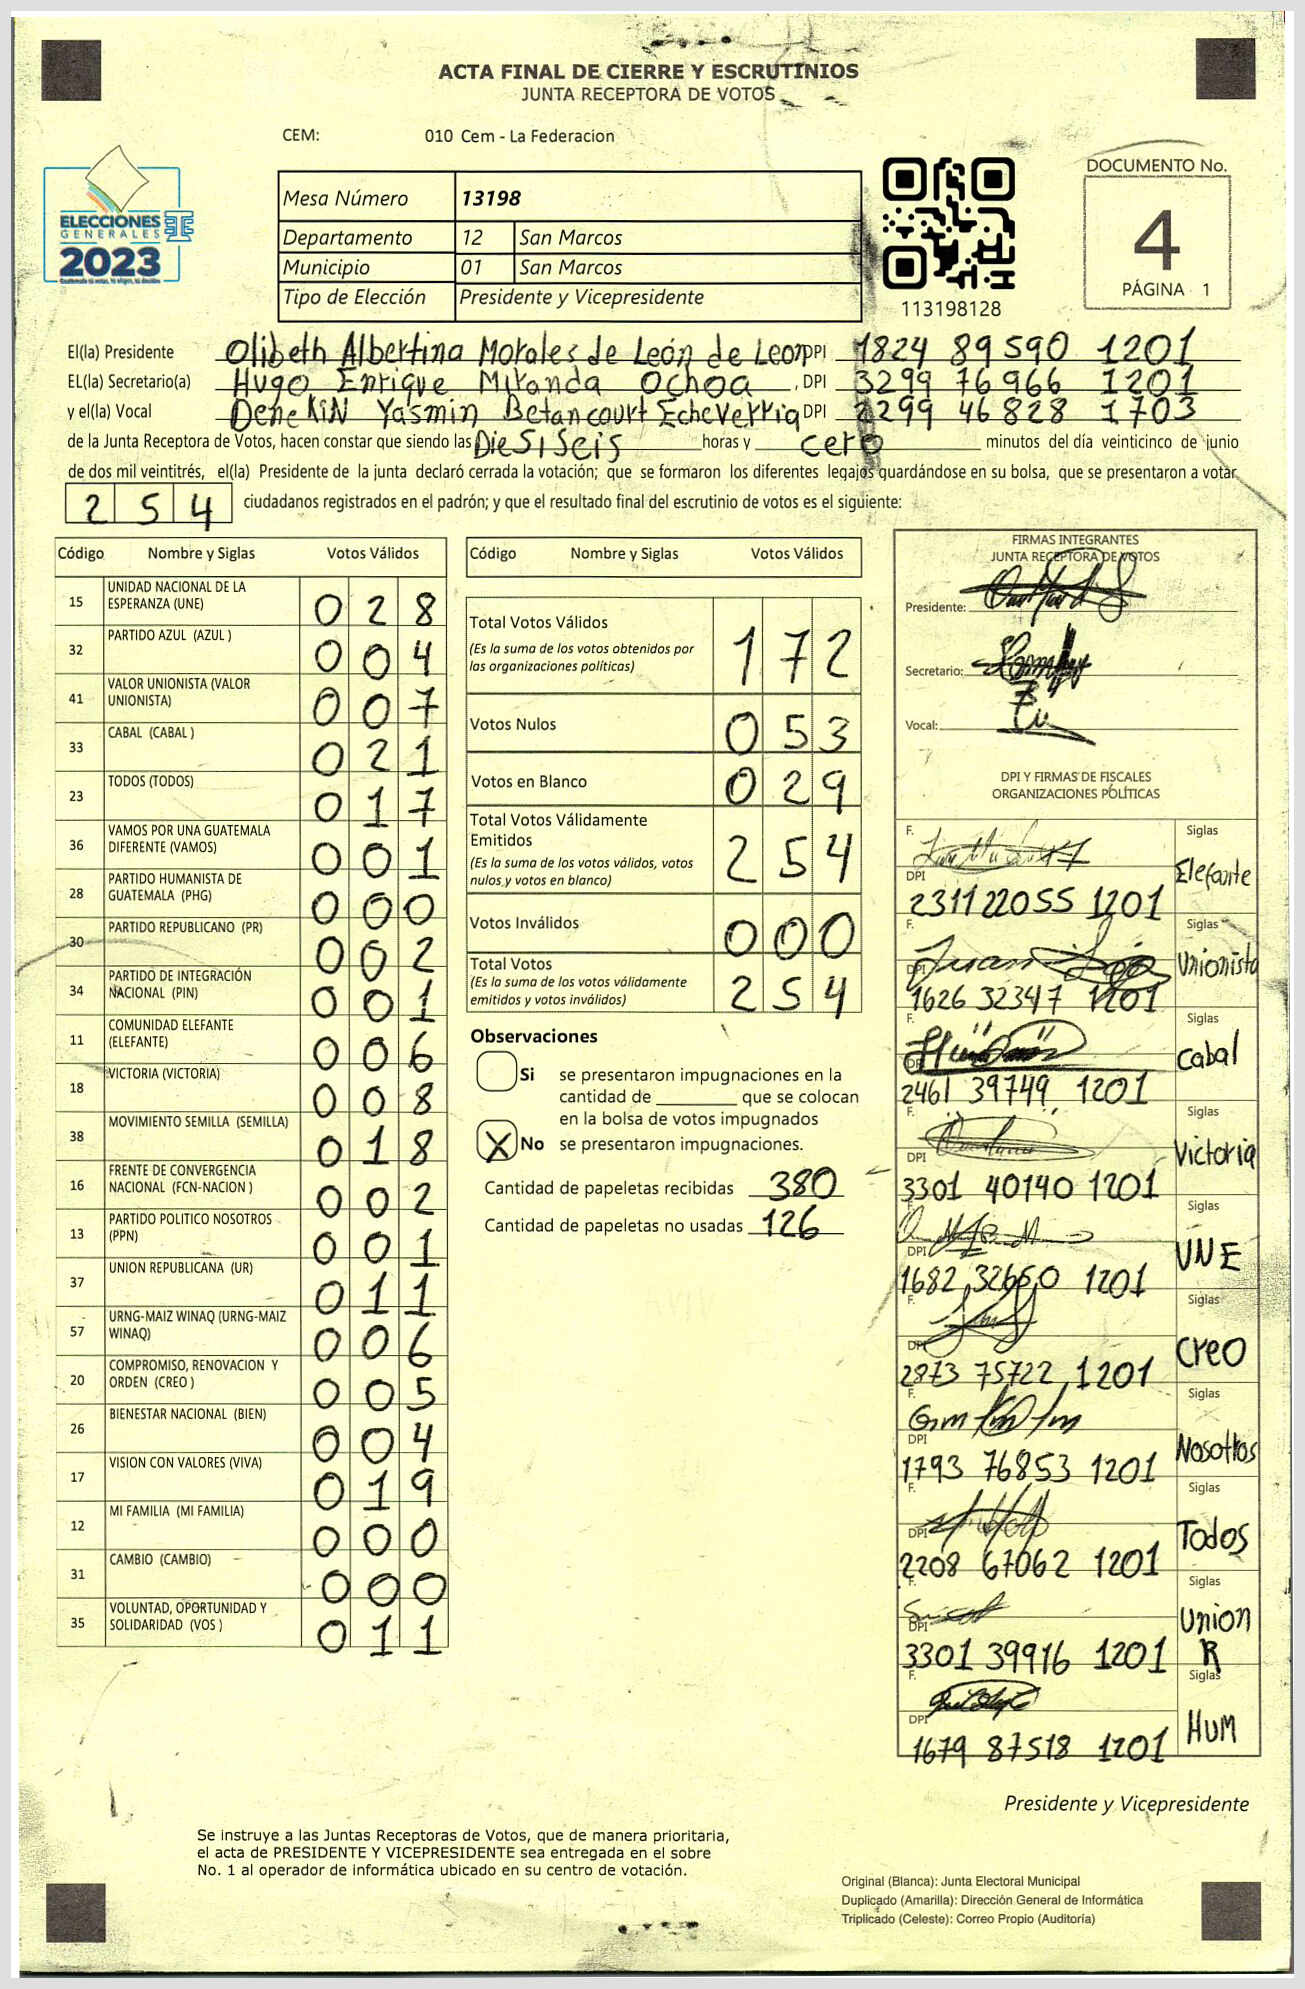 ACTA FINAL DE CIERRE Y ESCRUTINIOS
JUNTA RECEPTORA DE VOTOS
CEM: 010 Cem - La Federacion
ELECCIONES
GENERALES
2023
Mesa Número 13198
Departamento 12 San Marcos
Municipio 01 San Marcos
Tipo de Elección Presidente y Vicepresidente
113198128
DOCUMENTO No.
4
PÁGINA 1
El(la) Presidente Olibeth Albertina Morales de León de León DPI 1824 89590 1201
EL(la) Secretario(a) Hugo Enrique Miranda Ochoa , DPI 3299 76966 1201
y el(la) Vocal DeneKiN Yasmin Betancourt Echeverria DPI 2299 46828 1703
de la Junta Receptora de Votos, hacen constar que siendo las DieSiSeis horas y cero minutos del día veinticinco de junio
de dos mil veintitrés, el(la) Presidente de la junta declaró cerrada la votación; que se formaron los diferentes legajos guardándose en su bolsa, que se presentaron a votar
254 ciudadanos registrados en el padrón; y que el resultado final del escrutinio de votos es el siguiente:
Código Nombre y Siglas Votos Válidos
15 UNIDAD NACIONAL DE LA ESPERANZA (UNE) 028
32 PARTIDO AZUL (AZUL ) 004
41 VALOR UNIONISTA (VALOR UNIONISTA) 007
33 CABAL (CABAL ) 021
23 TODOS (TODOS) 017
36 VAMOS POR UNA GUATEMALA DIFERENTE (VAMOS) 001
28 PARTIDO HUMANISTA DE GUATEMALA (PHG) 000
30 PARTIDO REPUBLICANO (PR) 002
34 PARTIDO DE INTEGRACIÓN NACIONAL (PIN) 001
11 COMUNIDAD ELEFANTE (ELEFANTE) 006
18 VICTORIA (VICTORIA) 008
38 MOVIMIENTO SEMILLA (SEMILLA) 018
16 FRENTE DE CONVERGENCIA NACIONAL (FCN-NACION ) 002
13 PARTIDO POLITICO NOSOTROS (PPN) 001
37 UNION REPUBLICANA (UR) 011
57 URNG-MAIZ WINAQ (URNG-MAIZ WINAQ) 006
20 COMPROMISO, RENOVACION Y ORDEN (CREO ) 005
26 BIENESTAR NACIONAL (BIEN) 004
17 VISION CON VALORES (VIVA) 019
12 MI FAMILIA (MI FAMILIA) 000
31 CAMBIO (CAMBIO) 000
35 VOLUNTAD, OPORTUNIDAD Y SOLIDARIDAD (VOS ) 011
Código Nombre y Siglas Votos Válidos
Total Votos Válidos 172
(Es la suma de los votos obtenidos por
las organizaciones políticas)
Votos Nulos 053
Votos en Blanco 029
Total Votos Válidamente
Emitidos 254
(Es la suma de los votos válidos, votos
nulos y votos en blanco)
Votos Inválidos 000
Total Votos 254
(Es la suma de los votos válidamente
emitidos y votos inválidos)
Observaciones
Si se presentaron impugnaciones en la
cantidad de ________ que se colocan
en la bolsa de votos impugnados
X No se presentaron impugnaciones.
Cantidad de papeletas recibidas 380
Cantidad de papeletas no usadas 126
FIRMAS INTEGRANTES
JUNTA RECEPTORA DE VOTOS
Presidente:
Secretario:
Vocal:
DPI Y FIRMAS DE FISCALES
ORGANIZACIONES POLÍTICAS
F. Siglas
DPI Elefante
2311 22055 1201
F. Siglas
DPI Unionista
1626 32347 1201
F. Siglas
DPI Cabal
2461 39749 1201
F. Siglas
DPI Victoria
3301 40140 1201
F. Siglas
DPI UNE
1682 32660 1201
F. Siglas
DPI Creo
2873 75722 1201
F. Siglas
DPI Nosotros
1793 76853 1201
F. Siglas
DPI Todos
2208 67062 1201
F. Siglas
DPI Union R
3301 39916 1201
F. Siglas
DPI HUM
1679 87518 1201
Presidente y Vicepresidente
Se instruye a las Juntas Receptoras de Votos, que de manera prioritaria,
el acta de PRESIDENTE Y VICEPRESIDENTE sea entregada en el sobre
No. 1 al operador de informática ubicado en su centro de votación.
Original (Blanca): Junta Electoral Municipal
Duplicado (Amarilla): Dirección General de Informática
Triplicado (Celeste): Correo Propio (Auditoría)